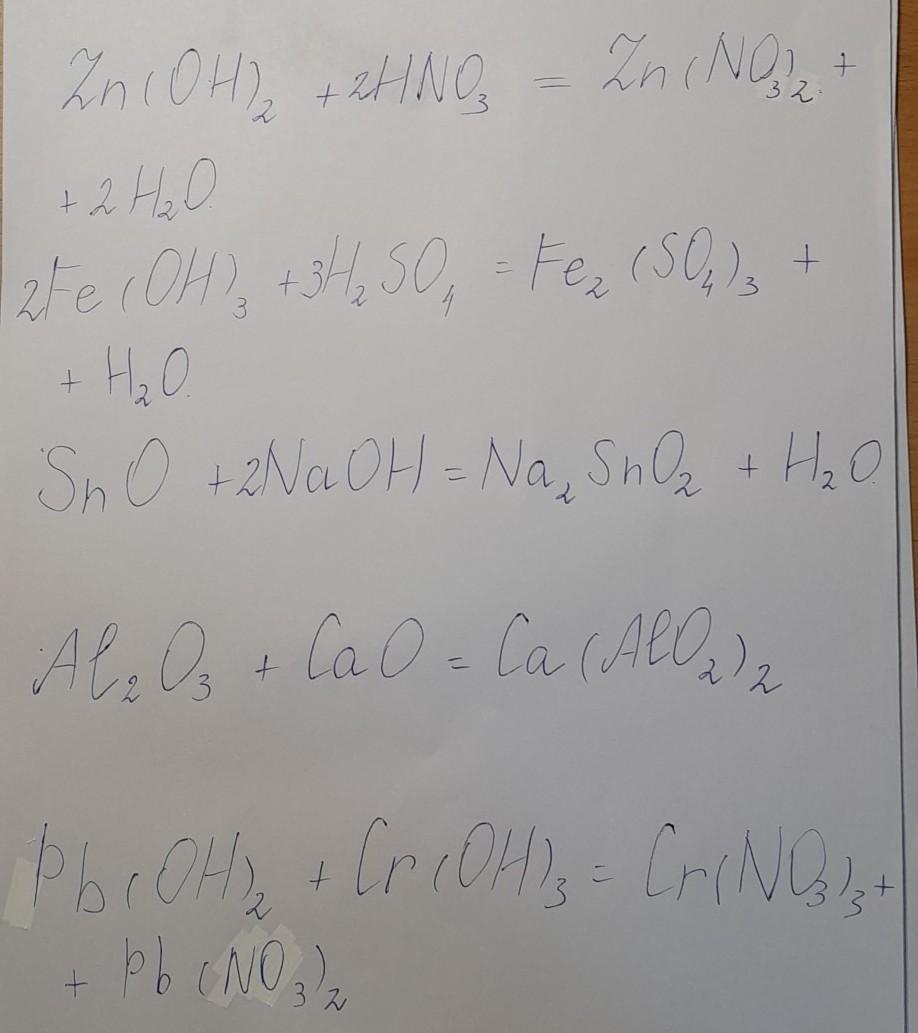 Zn(OH)₂ + 2HNO₃ = Zn(NO₃)₂ +
+ 2H₂O.
2Fe(OH)₃ + 3H₂SO₄ = Fe₂(SO₄)₃ +
+ H₂O.
SnO + 2NaOH = Na₂SnO₂ + H₂O.
Al₂O₃ + CaO = Ca(AlO₂)₂
Pb(OH)₂ + Cr(OH)₃ = Cr(NO₃)₃ +
+ Pb(NO₃)₂